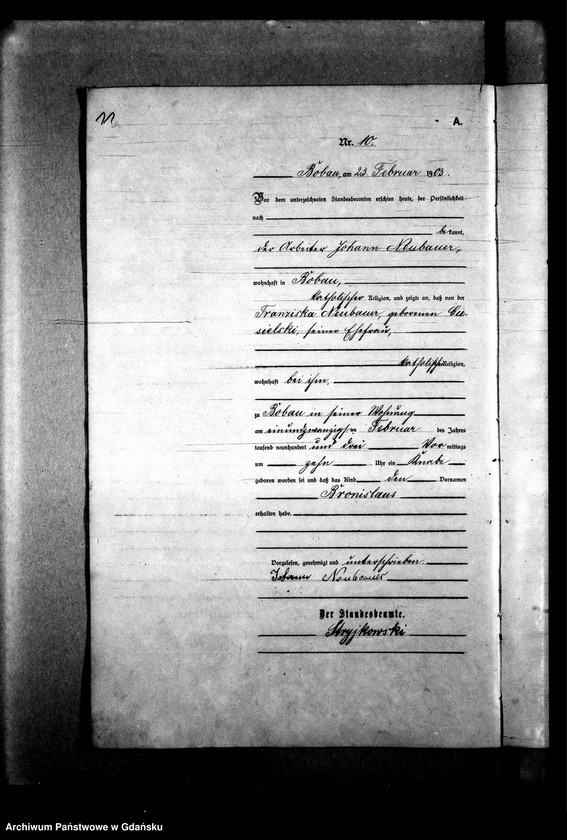 11
A.
Nr. 10.
Bobau, am 23 Februar 1903.
Vor dem unterzeichneten Standesbeamten erschien heute, der Persönlichkeit
nach
be kannt,
der Arbeiter Johann Neubauer,
wohnhaft in Bobau,
katholischer Religion, und zeigte an, daß von der
Franziska Neubauer, geborenen Cie-
sielski, seiner Ehefrau,
katholischer Religion,
wohnhaft bei ihm,
zu Bobau in seiner Wohnung
am einundzwanzigsten Februar des Jahres
tausend neunhundert und drei Vor mittags
um zehn Uhr ein Knabe
geboren worden sei und daß das Kind den Vornamen
Bronislaus
erhalten habe.
Vorgelesen, genehmigt und unterschrieben.
Johann Neubauer
Der Standesbeamte.
Stryjkowski
Archiwum Państwowe w Gdańsku